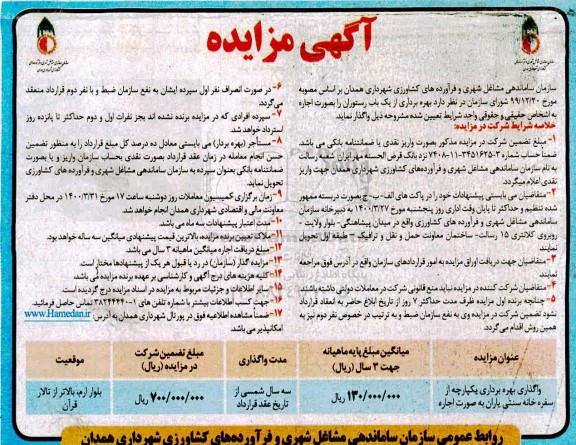 آگهی مزایده
سازمان ساماندهی مشاغل شهری و فرآورده های کشاورزی شهرداری همدان بر اساس مصوبه
مورخ ۹۹/۱۲/۲۰ شورای سازمان در نظر دارد بهره برداری از یک باب رستوران را بصورت اجاره
به اشخاص حقیقی و حقوقی واجد شرایط تعیین شده مشروحه ذیل واگذار نماید.
خلاصه شرایط شرکت در مزایده:
۱- مبلغ تضمین شرکت در مزایده مذکور بصورت واریز نقدی یا ضمانتنامه بانکی می باشد.
ضمناً حساب شماره نزد بانک قرض الحسنه مهر ایران شعبه رسالت
بنام سازمان ساماندهی مشاغل شهری و فرآورده های کشاورزی شهرداری همدان جهت واریز
نقدی اعلام میگردد.
۲- متقاضیان می بایستی پیشنهادات خود را در پاکت های الف- ب- ج بصورت دربسته ممهور
شده تنظیم و حداکثر تا پایان وقت اداری روز پنجشنبه مورخ ۱۴۰۰/۳/۲۷ به دبیرخانه سازمان
ساماندهی مشاغل شهری و فرآورده های کشاورزی واقع در میدان پیشاهنگی- بلوار ولایت -
روبروی کلانتری ۱۵ رسالت- ساختمان معاونت حمل و نقل و ترافیک – طبقه اول تحویل
نمایند.
۳- متقاضیان جهت دریافت اوراق مزایده به امور قراردادهای سازمان واقع در آدرس فوق مراجعه
نمایند.
۴- متقاضیان شرکت کننده در مزایده نباید منع قانونی شرکت در معاملات دولتی داشته باشند.
۵- چنانچه برنده اول مزایده ظرف مدت حداکثر ۷ روز از تاریخ ابلاغ حاضر به انعقاد قرارداد
نشود تضمین شرکت در مزایده وی به نفع سازمان ضبط و به ترتیب در خصوص نفر دوم نیز به
همین روش اقدام می گردد.
۶- در صورت انصراف نفر اول سپرده ایشان به نفع سازمان ضبط و با نفر دوم قرارداد منعقد
می گردد.
۷- سپرده افرادی که در مزایده برنده نشده اند بجز نفرات اول و دوم حداکثر تا پانزده روز
استرداد خواهد شد.
۸- مستأجر (بهره بردار) می بایستی معادل ده درصد کل مبلغ قرارداد را به منظور تضمین
حسن انجام معامله در زمان عقد قرارداد بصورت نقدی بحساب سازمان واریز و یا بصورت
ضمانتنامه بانکی بعنوان سپرده به سازمان ساماندهی مشاغل شهری و فرآورده های کشاورزی
تحویل نماید.
۹- زمان برگزاری کمیسیون معاملات روز دوشنبه ساعت ۱۷ مورخ ۱۴۰۰/۳/۳۱ در محل دفتر
معاونت مالی و اقتصادی شهرداری همدان انجام خواهد شد.
۱۰- مدت اعتبار پیشنهادات سه ماه می باشد.
۱۱- ملاک تعیین برنده مزایده، بالاترین قیمت پیشنهادی میانگین سه ساله خواهد بود.
۱۲- مبلغ دریافت اجاره میانگین ماهیانه ۳ سال می باشد.
۱۳- مزایده گذار (سازمان) در رد یا قبول هر یک از پیشنهادها مختار است.
۱۴- کلیه هزینه های درج آگهی و کارشناسی بر عهده برنده مزایده می باشد.
۱۵- سایر اطلاعات و جزئیات مربوط به مزایده در اسناد مزایده درج گردیده است.
۱۶- جهت کسب اطلاعات بیشتر با شماره تلفن های تماس حاصل فرمائید.
۱۷- ضمناً مشاهده اطلاعیه فوق در پورتال شهرداری همدان به آدرس: www.Hamedan.ir
امکانپذیر می باشد.
عنوان مزایده
میانگین مبلغ پایه ماهیانه
جهت ۳ سال (ریال)
مدت واگذاری
مبلغ تضمین شرکت
در مزایده (ریال)
موقعیت
واگذاری بهره برداری یکپارچه از
سفره خانه سنتی یاران به صورت اجاره
۱۳۰/۰۰۰/۰۰۰ ریال
سه سال شمسی از
تاریخ عقد قرارداد
۷۰۰/۰۰۰/۰۰۰ ریال
بلوار ارم، بالاتر از تالار
قرآن
روابط عمومی سازمان ساماندهی مشاغل شهری و فرآورده‌های کشاورزی شهرداری همدان